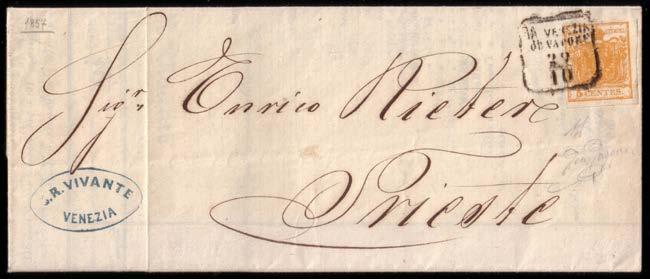 1857
DA VENEZIA
COL VAPORE
28
10
5 CENTES.
Sigr. Enrico Rieter
Trieste
J.R. VIVANTE
VENEZIA